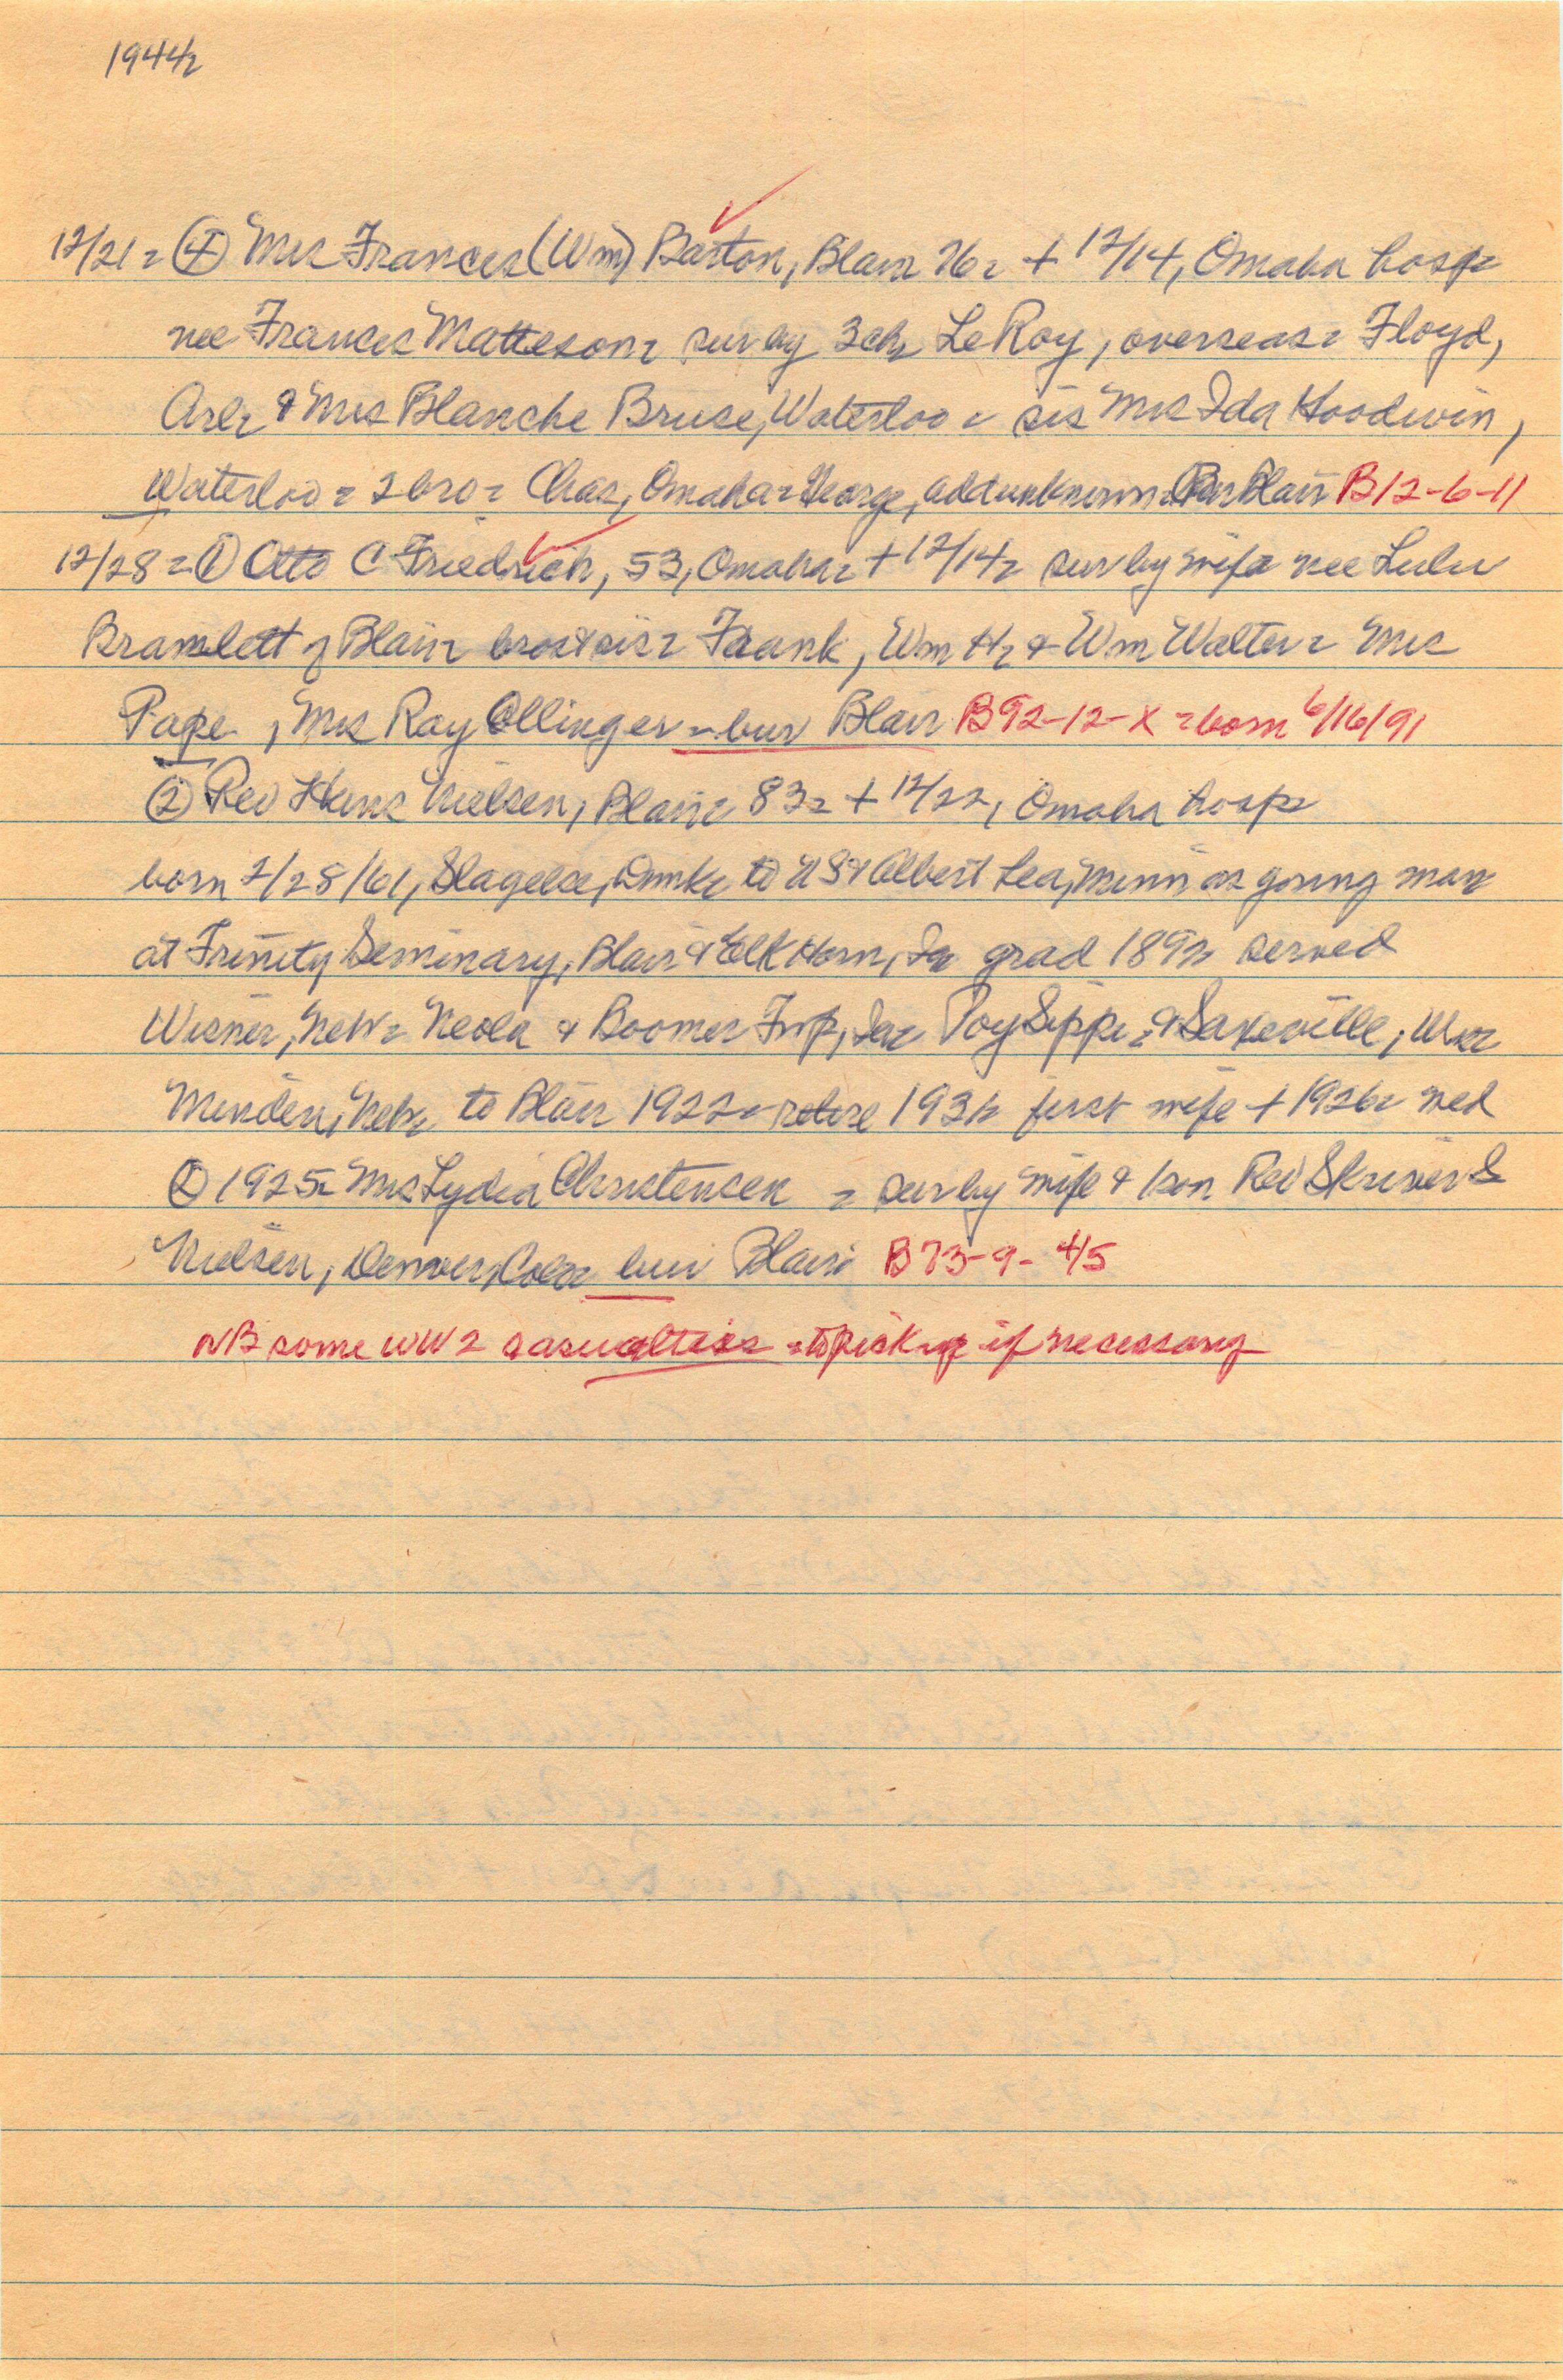 1944
12/21 = ④ Mrs Frances (Wm) Barton, Blair 76 = + 12/14, Omaha hosp =
nee Frances Matteson = sur by 3 ch = LeRoy, overseas = Floyd,
Arl = & Mrs Blanche Bruse, Waterloo = sis Mrs Ida Hoodwin,
Waterloo = 2 bro = Chas, Omaha = George, add unknown = Bur Blair B12-6-11
12/28 = ① Otto C Friedrich, 53, Omaha = + 12/14 = sur by wife nee Lulu
Bramlett of Blair = bros & sis = Frank, Wm H = & Wm Walter = Mrs
Pape, Mrs Ray Ollinger = bur Blair B92-12-X = born 6/16/91
② Rev Hans Nielsen, Blair 83 = + 12/22, Omaha hosp =
born 7/28/61, Slagelse, Dnmk = to US & Albert Lea, Minn as young man
at Trinity Seminary, Blair & Elk Horn, Ia grad 189 served
Wisner, Neb = Neola & Boomer Twp, Ia = Poy Sippi = & Saxeville, Wis =
Minden, Neb = to Blair 1922 = retire 193 first wife + 192 wed
② 1925 = Mrs Lydia Christensen = sur by wife & 1 son Rev Skriver S
Nielsen, Denver, Colo = bur Blair B73-9-4/5
NB some WW2 casualties = to pick up if necessary